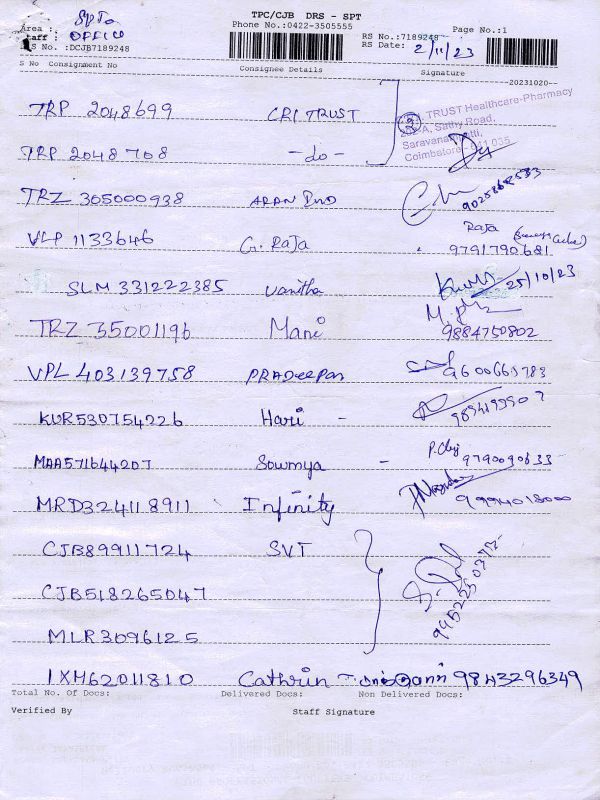 TPC/CJB DRS - SPT
Phone No.:0422-3505555
Area : SPTO
Staff : OFFICE
RS No. :DCJB7189248
RS No.:7189248
RS Date: 2/11/23
Page No.:1
S No Consignment No Consignee Details Signature
--20231020--
TRP 2048699 CRI TRUST
TRUST Healthcare-Pharmacy
A, Sathy Road,
Coimbatore
TRP 2048708 -do-
TRZ 305000938 ARAN
VLP 1133646 G. Raja Raja
9791790681
SLM 331222385 Vanitha 25/10/23
TRZ 35001196 Mani 9884750802
VPL 403139758 PRADEEPAN 9600663783
KUR530754226 Hari -
MAA571644207 Sowmya - 9790090633
MRD324118911 Infinity 9994018000
CJB89911724 SVT
CJB518265047
MLR3096125
IXM62011810 Cathrin - 9843296349
Total No. Of Docs: Delivered Docs: Non Delivered Docs:
Verified By Staff Signature